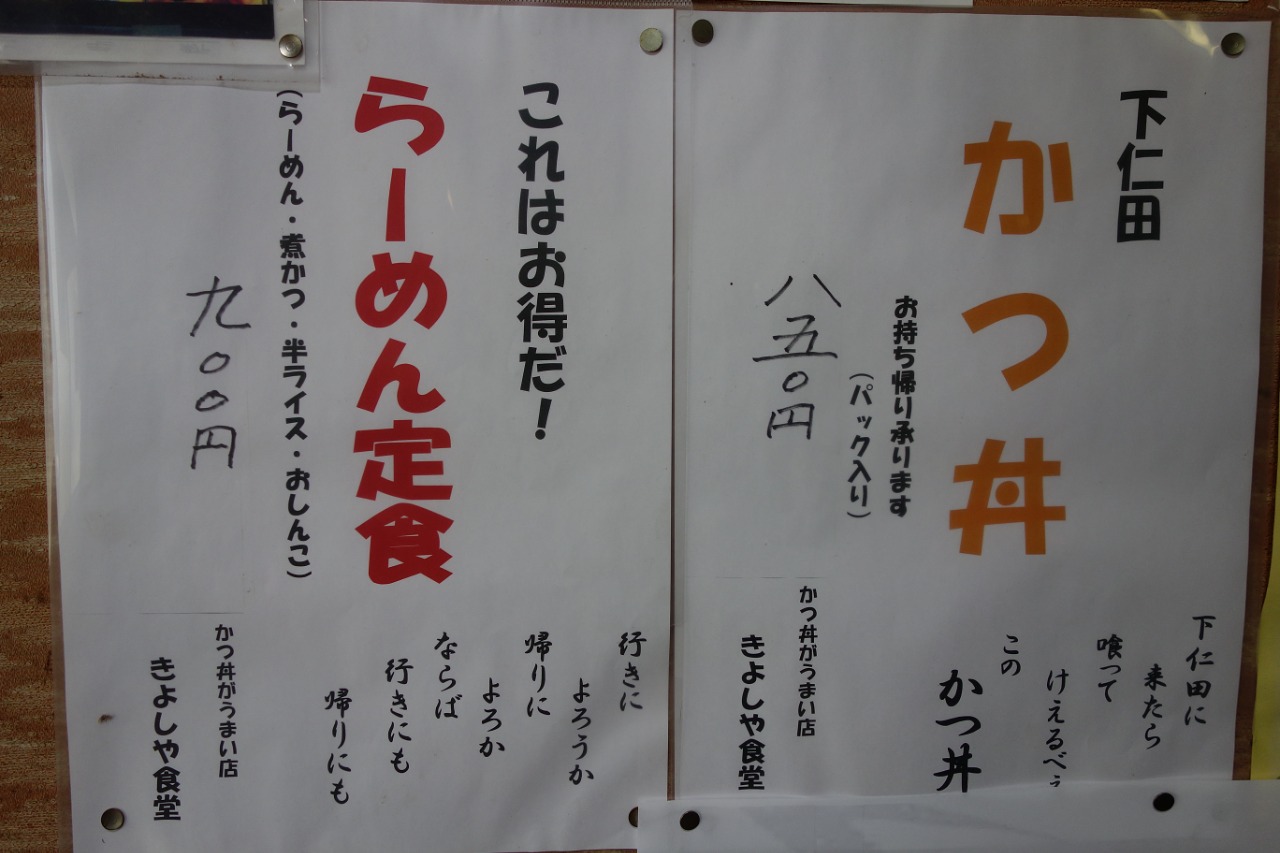 下仁田
かつ丼
お持ち帰り承ります
(パック入り)
八五〇円
下仁田に
来たら
喰って
けえるべぇ
この
かつ丼
かつ丼がうまい店
きよしや食堂
これはお得だ!
らーめん定食
(らーめん・煮かつ・半ライス・おしんこ)
九〇〇円
行きに
よろうか
帰りに
よろか
ならば
行きにも
帰りにも
かつ丼がうまい店
きよしや食堂